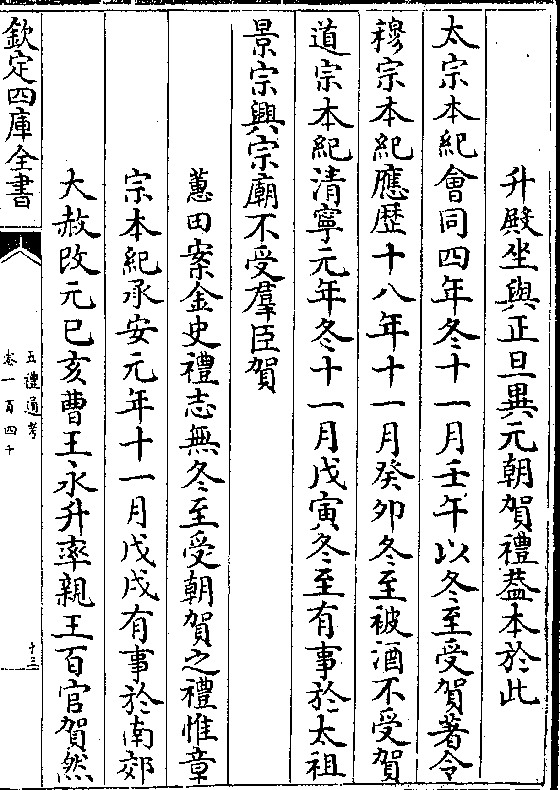 升殿坐與正旦異元朝賀禮葢本於此
太宗本紀會同四年冬十一月壬午以冬至受賀著令
穆宗本紀應歷十八年十一月癸卯冬至被酒不受賀
道宗本紀清寧元年冬十一月戊寅冬至有事於太祖
景宗興宗廟不受羣臣賀
蕙田案金史禮志無冬至受朝賀之禮惟章
宗本紀承安元年十一月戊戌有事於南郊
大赦改元已亥曹王永升率親王百官賀然
欽定四庫全書
五禮通考
卷一百四十
十三